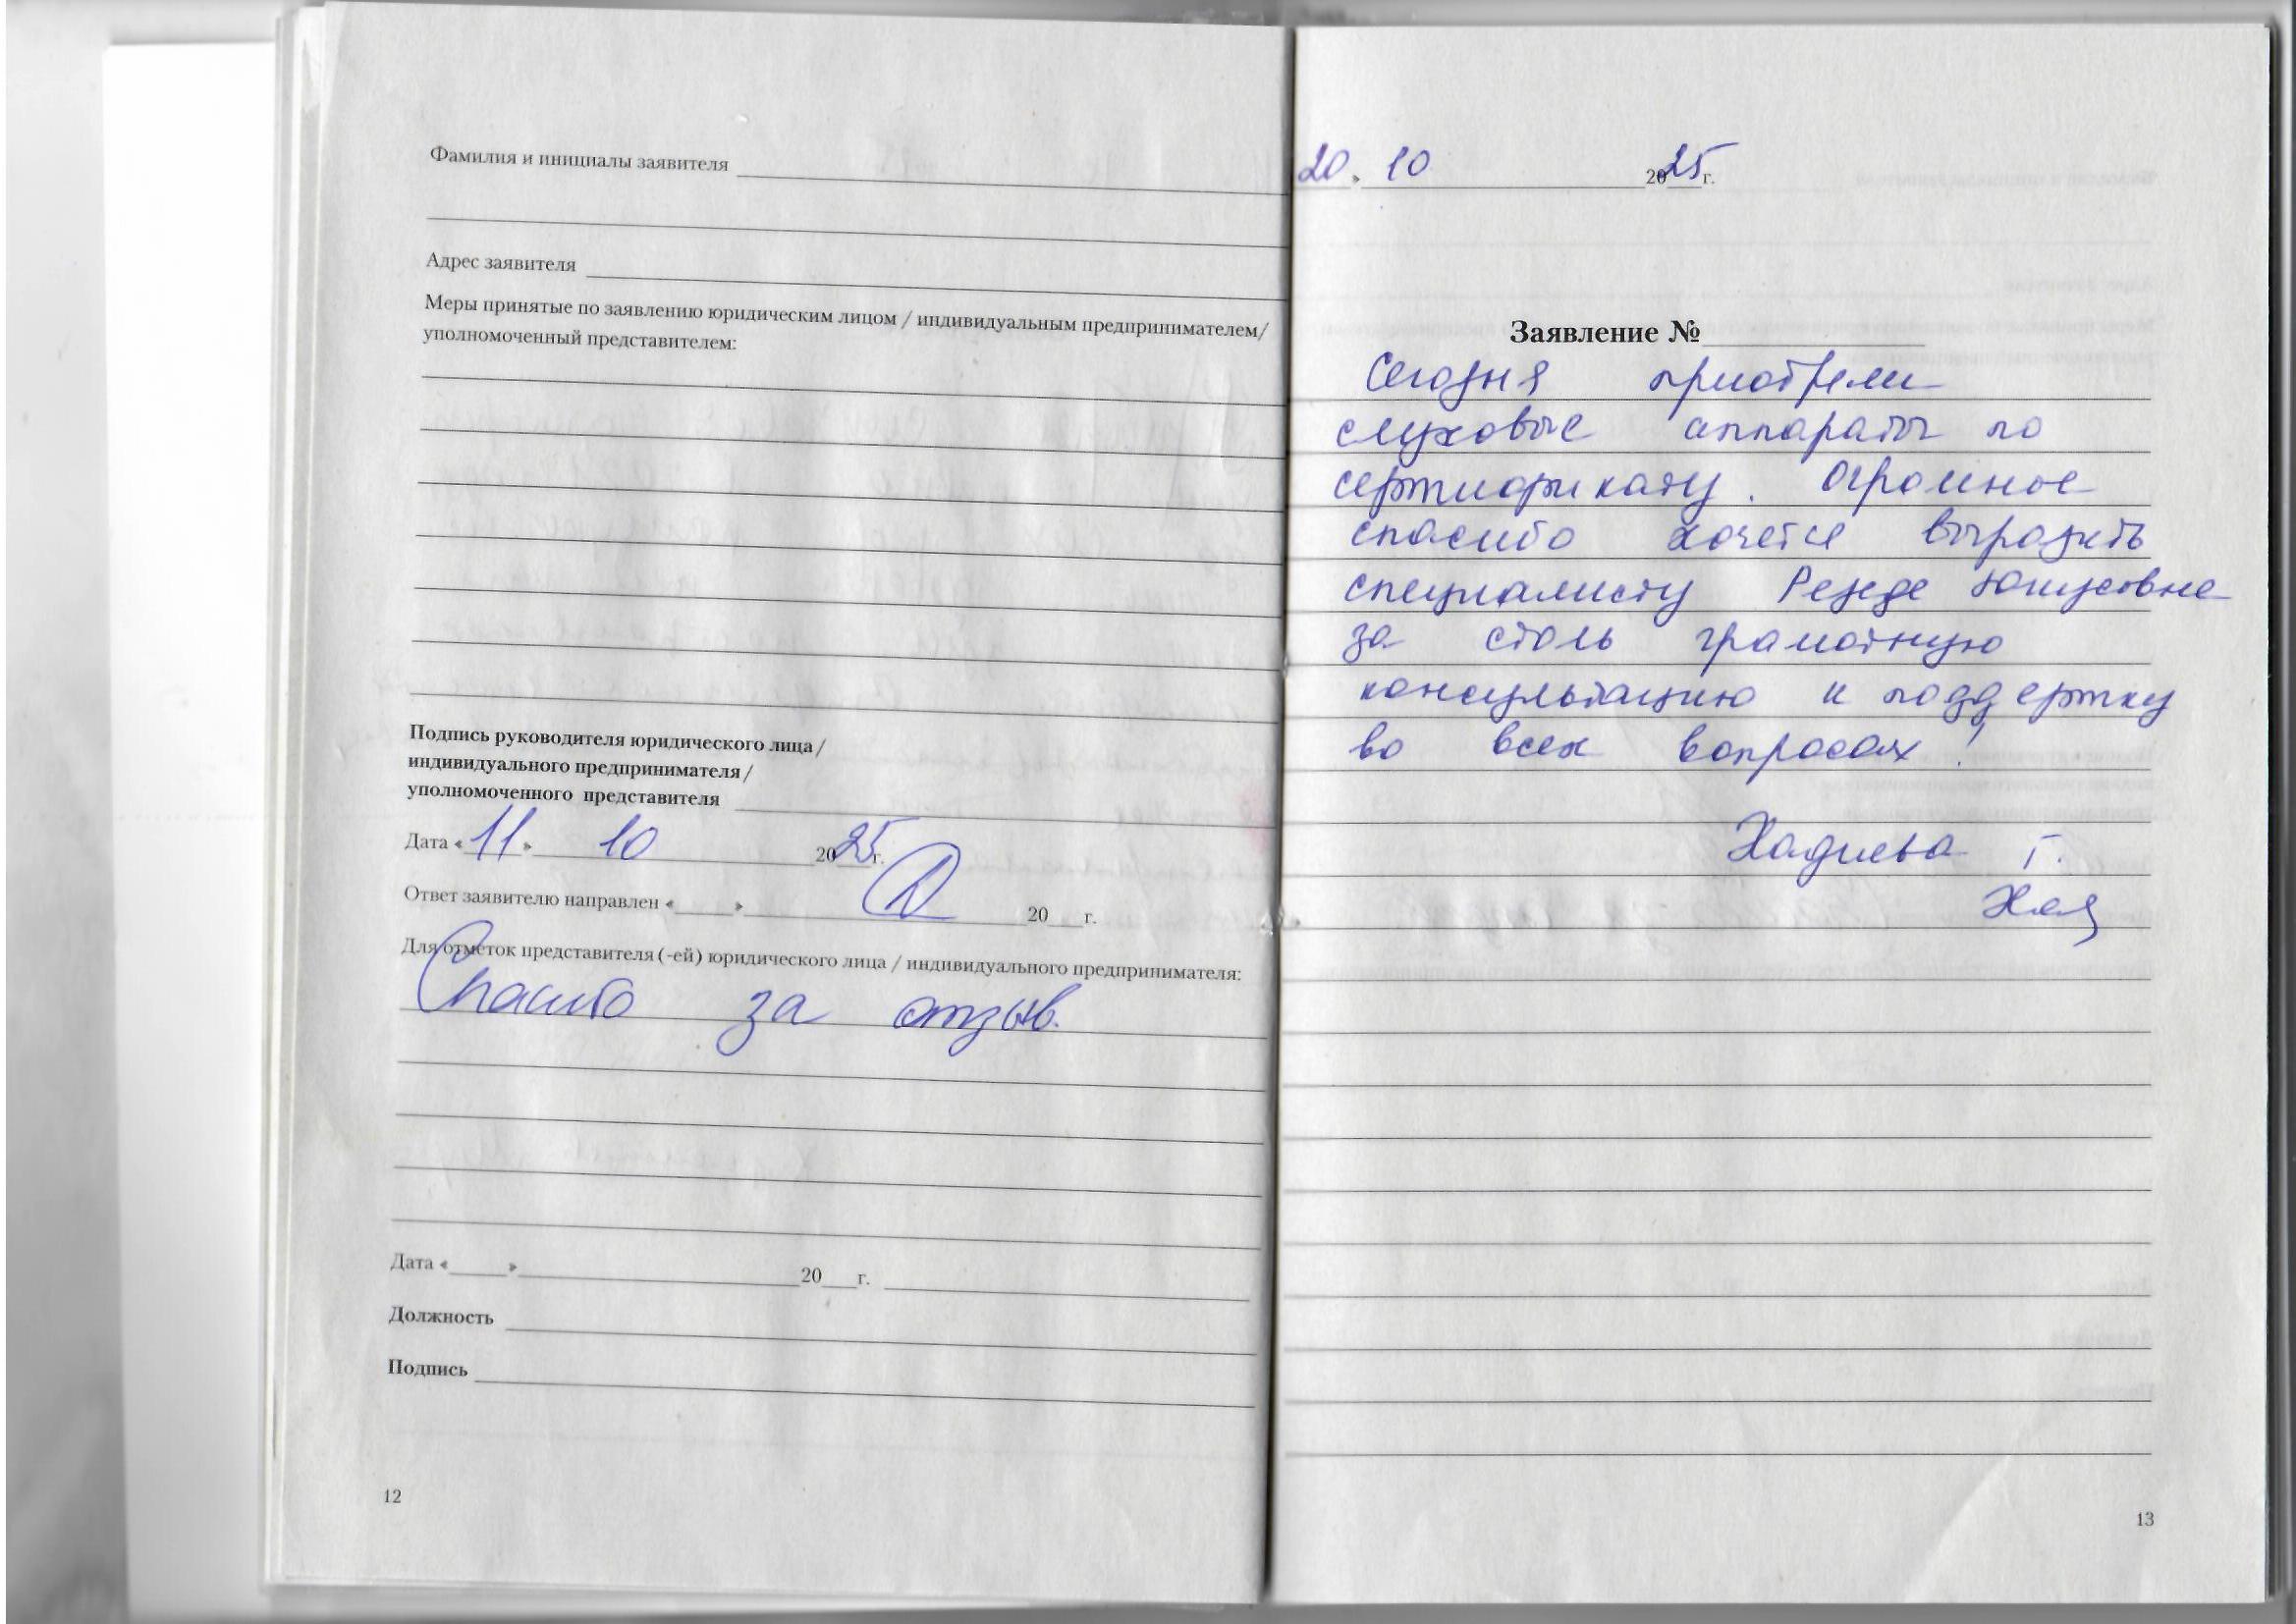 Фамилия и инициалы заявителя
Адрес заявителя
Меры принятые по заявлению юридическим лицом / индивидуальным предпринимателем/
уполномоченный представителем:
Подпись руководителя юридического лица /
индивидуального предпринимателя /
уполномоченного представителя
Дата «11» 10 2025г.
Ответ заявителю направлен «___» 20___г.
Для отметок представителя (-ей) юридического лица / индивидуального предпринимателя:
Спасибо за отзыв.
Дата «___» 20___г.
Должность
Подпись
12
20» 10 2025г.
Заявление №
Сегодня приобрели
слуховые аппараты по
сертификату. Огромное
спасибо хочется выразить
специалисту Резеде Юнусовне
за столь грамотную
консультацию и поддержку
во всех вопросах!
Хадиева Г.
13